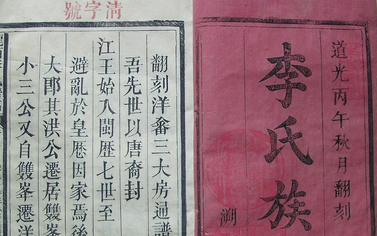 道光丙午秋月翻刻
李氏族
溯
清字號
翻刻洋畬三大房通譜
吾先世以唐裔封
江王始入閩歷七世至
避亂於皇歷因家焉後
大郎其洪公遷居雙峯
小三公又自雙峯遷洋